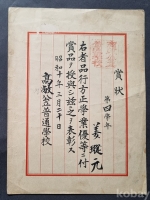 賞狀
第四學年
姜㻽元
右者品行方正學業優等ニ付
賞品ヲ授與シ茲ニ之ヲ表彰ス
昭和十年三月二十日
高敞公立普通學校
kobay